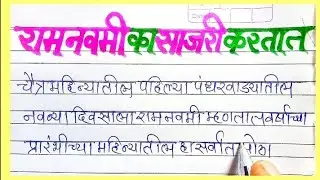 रामनवमी का साजरी करतात
चैत्र महिन्यातील पहिल्या पंधरवाड्यातील
नवव्या दिवसाला रामनवमी म्हणतात वर्षाच्या
प्रारंभीच्या महिन्यातील हा सर्वात